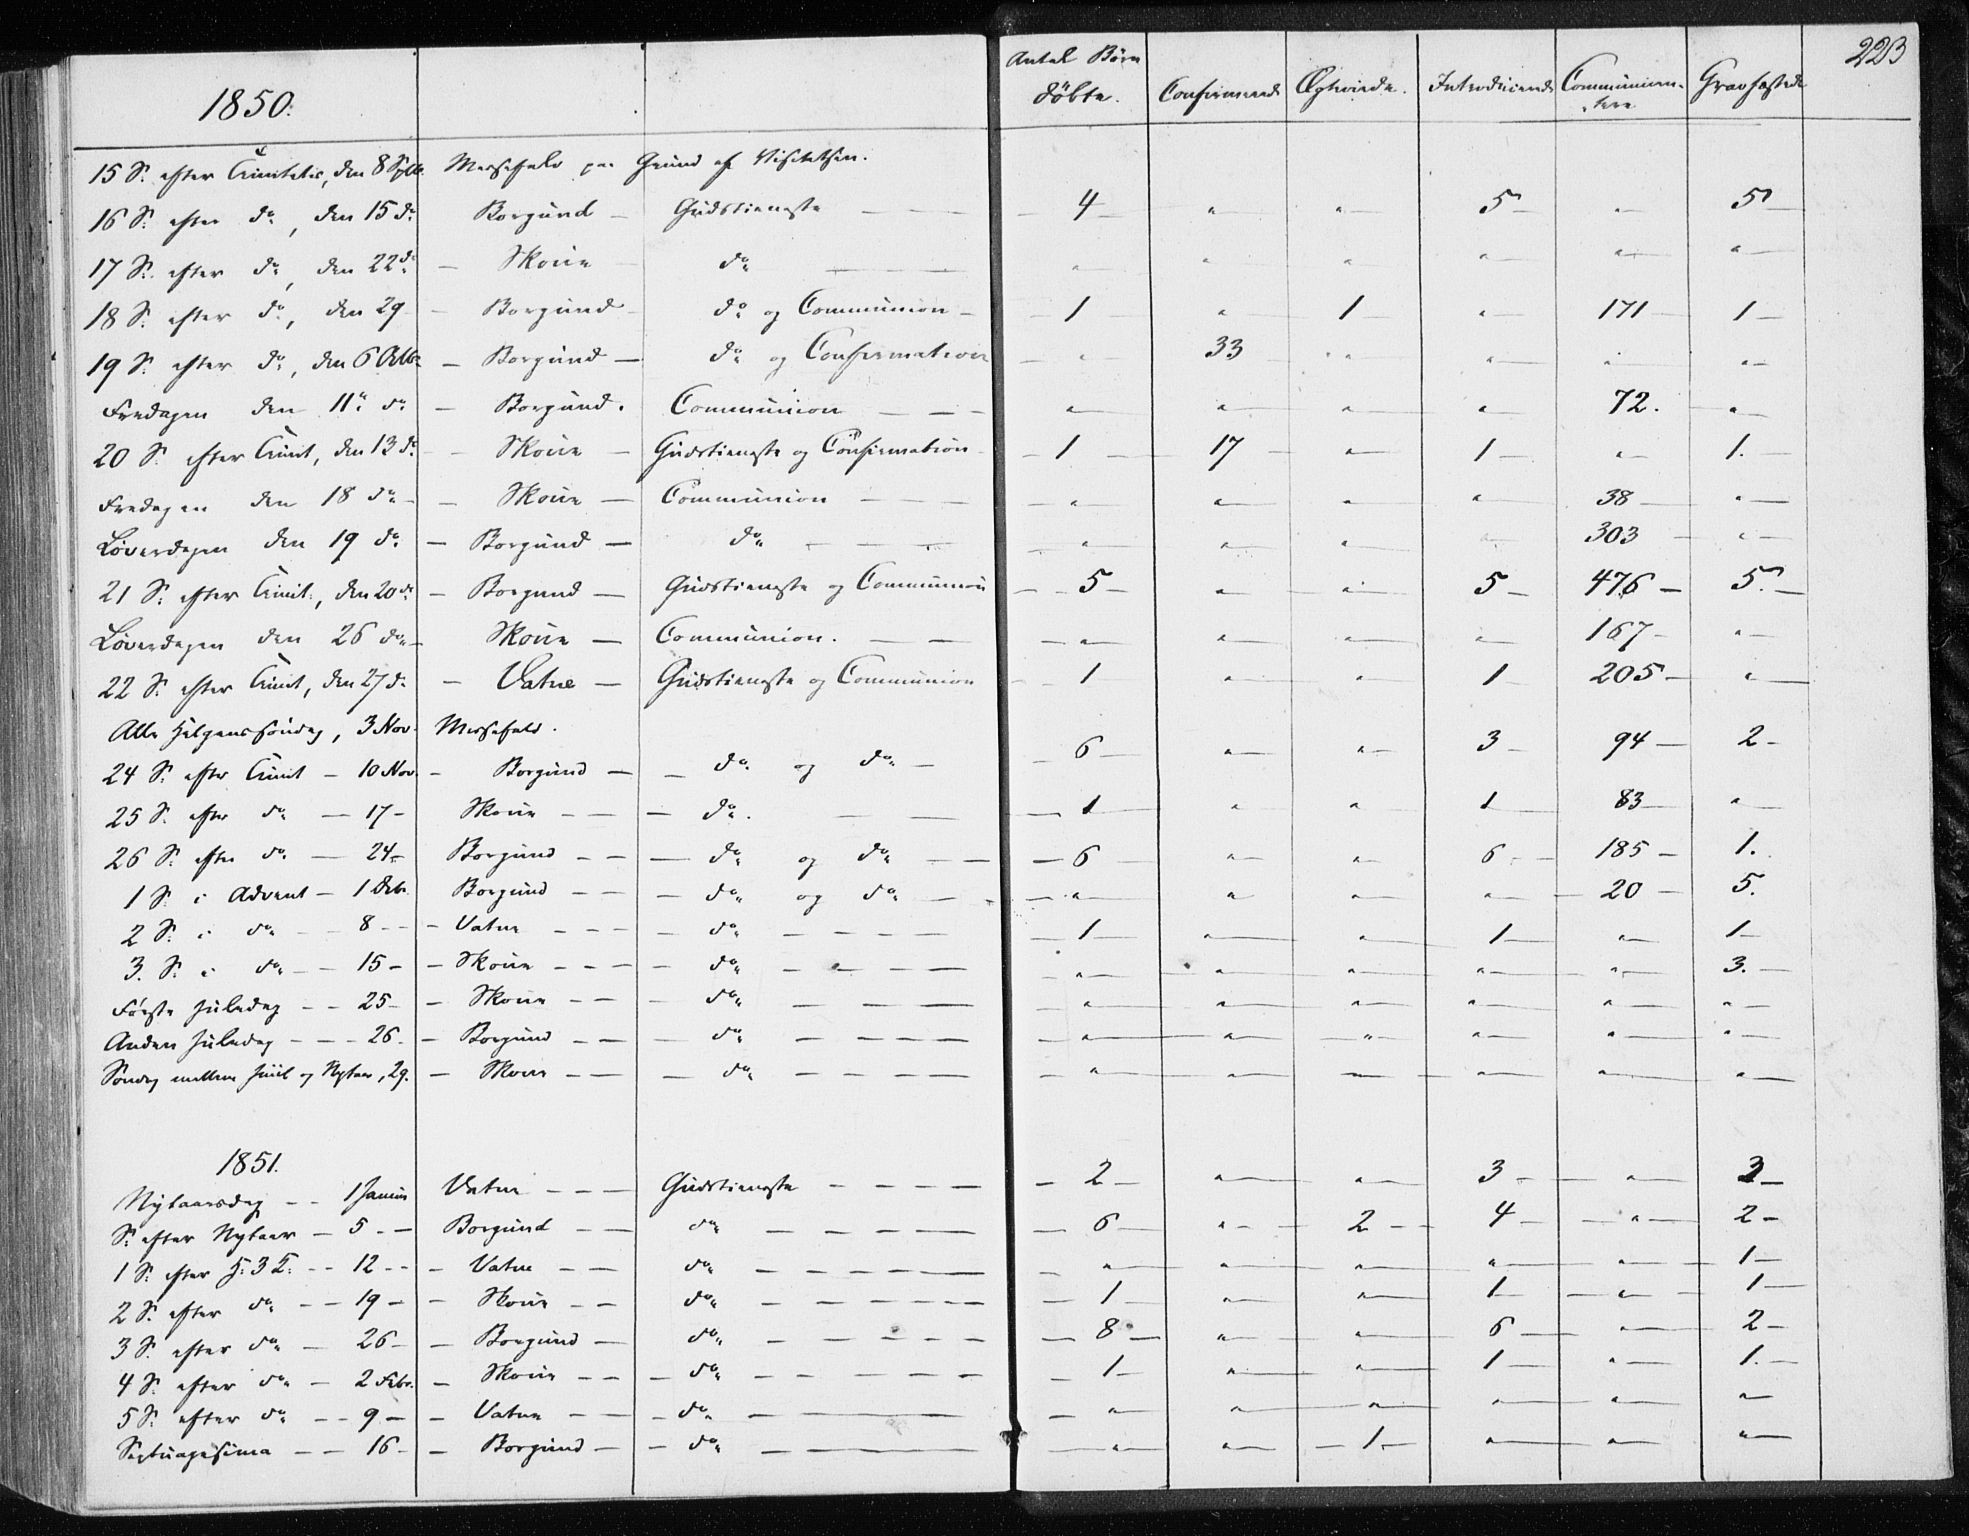 223
1850. Antal Børn døbte. Confirmerede Ægteviede. Introducerede Communicen-tere Gravfæstede
15 S. efter Trinitatis, den 8 Sptb. Messefald paa Grund af Visitatsen.
16 S. efter do, den 15 do Borgund – Gudstieneste – – – 4 " " 5 " 5
17 S. efter do, den 22 do – Skoue – do – – " " " " " "
18 S. efter do, den 29 – Borgund – do og Communion – 1 " 1 " 171 1
19 S. efter do, den 6 Octbr – Borgund – do og Confirmation " 33 " " " "
Fredagen den 11. do – Borgund. Communion – – – " " " " 72. "
20 S. efter Trinit, den 13 do – Skoue – Gudstieneste og Confirmation – 1 17 " 1 " 1.
Fredagen den 18 do – – Skoue – Communion – – – " " " " 38 "
Løverdagen den 19 do – Borgund – do – – – " " " " 303 "
21 S. efter Trinit., den 20 do – Borgund – Gudstieneste og Communion 5 " " 5 476 5.
Løverdagen den 26 do – Skoue – Communion. – – " " " " 167 "
22 S. efter Trinit, den 27 do – Vatne – Gudstieneste og Communion 1 " " 1 205 "
Alle Helgenssøndag, 3 Nov. Messefald.
24 S. efter Trinit – 10 Nov. – Borgund – – do og do – 6 " " 3 94 2
25 S. efter do – 17 – Skoue – – – do. – – 1 " " 1 83 "
26 S. efter do – 24 – Borgund – – – do og do – – 6 " " 6 185 1.
1 S. i Advent – 1 Debr. Borgund – – – do og do – – " " " " 20 5.
2 S. i do – – 8 – – – Vatne – – – – do – – – – 1 " " 1 " 1
3. S. i do – – 15 – – Skoue – – – – do – – – – " " " " " 3.
Første Juledag – – 25 – – Skoue – – – do – – – – " " " " " "
Anden Juledag – – – 26. – Borgund – – – do – – – – " " " " " "
Søndag mellem Juul og Nytaar, 29. – Skoue – – – do – – – – " " " " " "
1851.
Nytaarsdag – – 1 Januar Vatne – – – Gudstieneste – – – – 2 " " 3 " 3
S. efter Nytaar – 5 – – Borgund – – do – – – – 6 " 2 4 " 2
1 S. efter H. 3 K. – – 12 – – – Vatne – – do – – – – " " " " " 1
2 S. efter do – – 19 – – Skoue – – do – – – – 1 " " 1 " 1
3 S. efter do – 26 – – Borgund – do – – – – 8 " " 6 " 2
4 S. efter do – 2 Febr. – Skoue – – – do – – – – 1 " " 1 " 1.
5 S. efter do – – 9 – – Vatne – – – do – – – " " " " " "
Septuagesima – – 16 – – Borgund – – do – – – " " 1 " " "